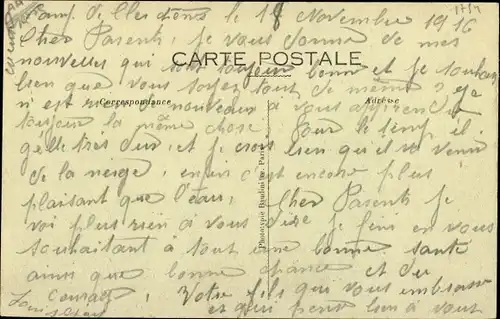 Camp de le 18 Novembre 1916
Cher Parents, je vous donne de mes
CARTE POSTALE
nouvelles qui sont toujour bonne et je souhaite
bien que vous soyez tout de même? Je
Correspondance
Adresse
n'est rien de nouveaux a vous apprendre
toujour la même chose, Pour le temp il
gele très dur et je crois bien qu'il va venir
de la neige, enfin c'est encore plus
plaisant que l'eau, Cher Parents je
voi plus rien a vous dire je fini en vous
souhaitant a tout une bonne santé
ainsi que bonne chance et du
courage, Votre fils qui vous embrasse
et qui pense bien à vous
Phototypie Baudinière, Paris